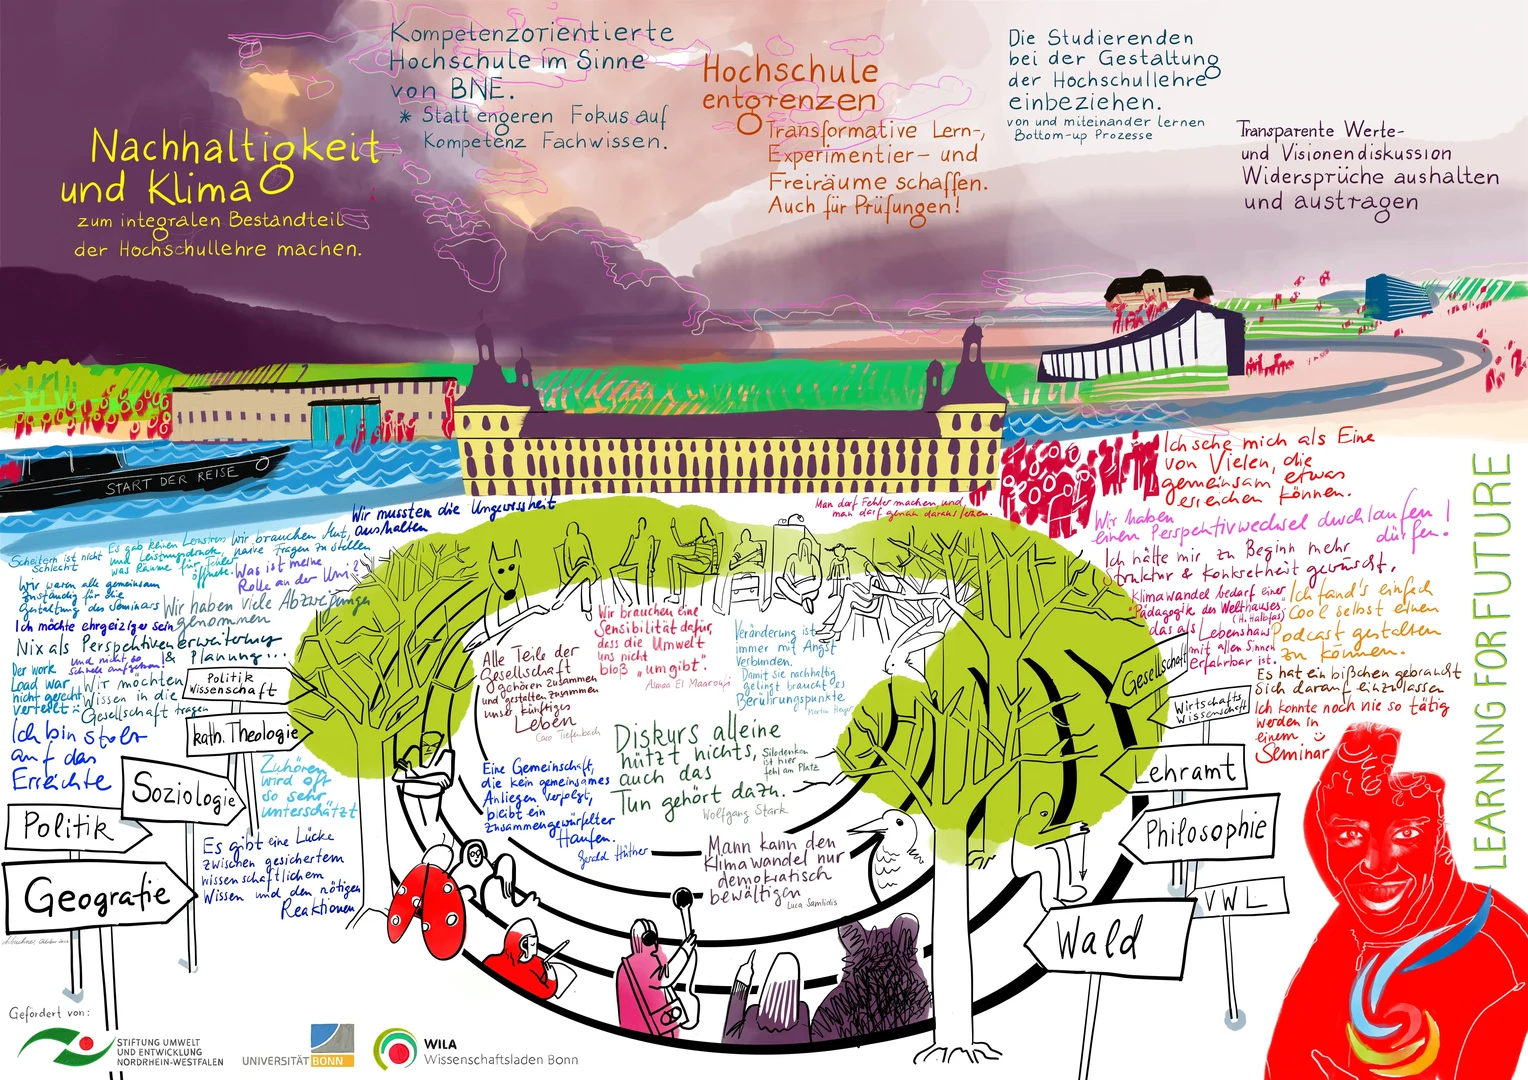 Nachhaltigkeit
und Klima
zum integralen Bestandteil
der Hochschullehre machen.
Kompetenzorientierte
Hochschule im Sinne
von BNE.
* Statt engeren Fokus auf
Kompetenz Fachwissen.
Hochschule
entgrenzen
Transformative Lern-,
Experimentier- und
Freiräume schaffen.
Auch für Prüfungen!
Die Studierenden
bei der Gestaltung
der Hochschullehre
einbeziehen.
von und miteinander lernen
Bottom-up Prozesse
Transparente Werte-
und Visionendiskussion
Widersprüche aushalten
und austragen
START DER REISE
Wir mussten die Ungewissheit
aushalten
Man darf Fehler machen und
man darf genau daraus lernen.
Ich sehe mich als Eine
von Vielen, die
gemeinsam etwas
erreichen können.
Wir haben
einen Perspektivwechsel durchlaufen
dürfen!
Ich hätte mir zu Beginn mehr
Struktur & Konkretheit gewünscht.
Klimawandel bedarf einer
"Pädagogik des Welthauses
(H. Halbfas)
das als Lebenshaus
mit allen Sinnen
erfahrbar ist.
Ich fand's einfach
Cool selbst einen
Podcast gestalten
zu können.
Es hat ein bißchen gebraucht
Sich darauf einzulassen
Ich konnte noch nie so tätig
werden in
einem
Seminar
LEARNING FOR FUTURE
Scheitern ist nicht
schlecht
Es gab keinen Lernstress
und Leistungsdruck,
was Räume für Fehler
öffnete.
Wir brauchen Mut,
naive Fragen zu stellen
Was ist meine
Rolle an der Uni?
Wir waren alle gemeinsam
zuständig für die
Gestaltung des Seminars
Wir haben viele Abzweigungen
genommen
Ich möchte ehrgeiziger sein
Nix als Perspektivenerweiterung
& Planung...
und nicht so
schnell aufgeben!
Der work
Load war
nicht gerecht
verteilt
Wir möchten
Wissen in die
Gesellschaft tragen
Ich bin stolz
auf das
Erreichte
Politik
Wissenschaft
kath. Theologie
Soziologie
Politik
Geografie
Zuhören
wird oft
so sehr
unterschätzt
Es gibt eine Lücke
zwischen gesichertem
wissenschaftlichem
Wissen und den nötigen
Reaktionen
Alle Teile der
Gesellschaft
gehören zusammen
und gestalten zusammen
unser künftiges
Leben
Caro Tiefenbach
Wir brauchen eine
Sensibilität dafür,
dass die Umwelt
uns nicht
bloß "umgibt".
Veränderung ist
immer mit Angst
Verbunden.
Damit sie nachhaltig
gelingt braucht es
Berührungspunkte
Diskurs alleine
nützt nichts,
auch das
Tun gehört dazu.
Wolfgang Stark
Silodenken
ist hier
fehl am Platz
Eine Gemeinschaft,
die kein gemeinsames
Anliegen verfolgt,
bleibt ein
zusammengewürfelter
Haufen.
Gerald Hüther
Mann kann den
Klimawandel nur
demokratisch
bewältigen
Gesellschaft
Wirtschafts
Wissenschaft
Lehramt
Philosophie
VWL
Wald
Gefördert von:
STIFTUNG UMWELT
UND ENTWICKLUNG
NORDRHEIN-WESTFALEN
UNIVERSITÄT BONN
WILA
Wissenschaftsladen Bonn